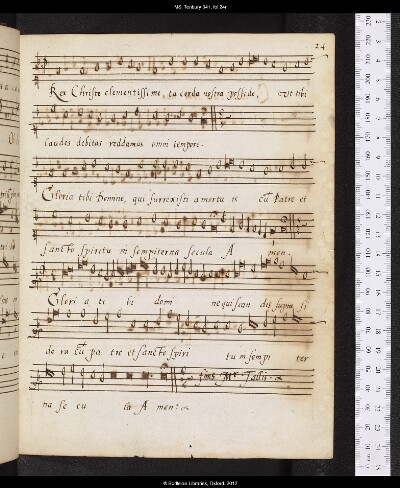 MS. Tenbury 341, fol.24r
24
Rex Christe clementissime, tu corda nostra posside, Vt tibi
laudes debitas reddamus omni tempore.
Gloria tibi Domine, qui surrexisti a mortu is cū Patre et
sancto spiritu in sempiterna secula A men.
Glori a ti bi domi ne qui scan dis supra si
de ra Cū pa tre et sancto spiri tu in sempi ter
na se cu la A men:
finis Mr Tallis
© Bodleian Libraries, Oxford, 2012